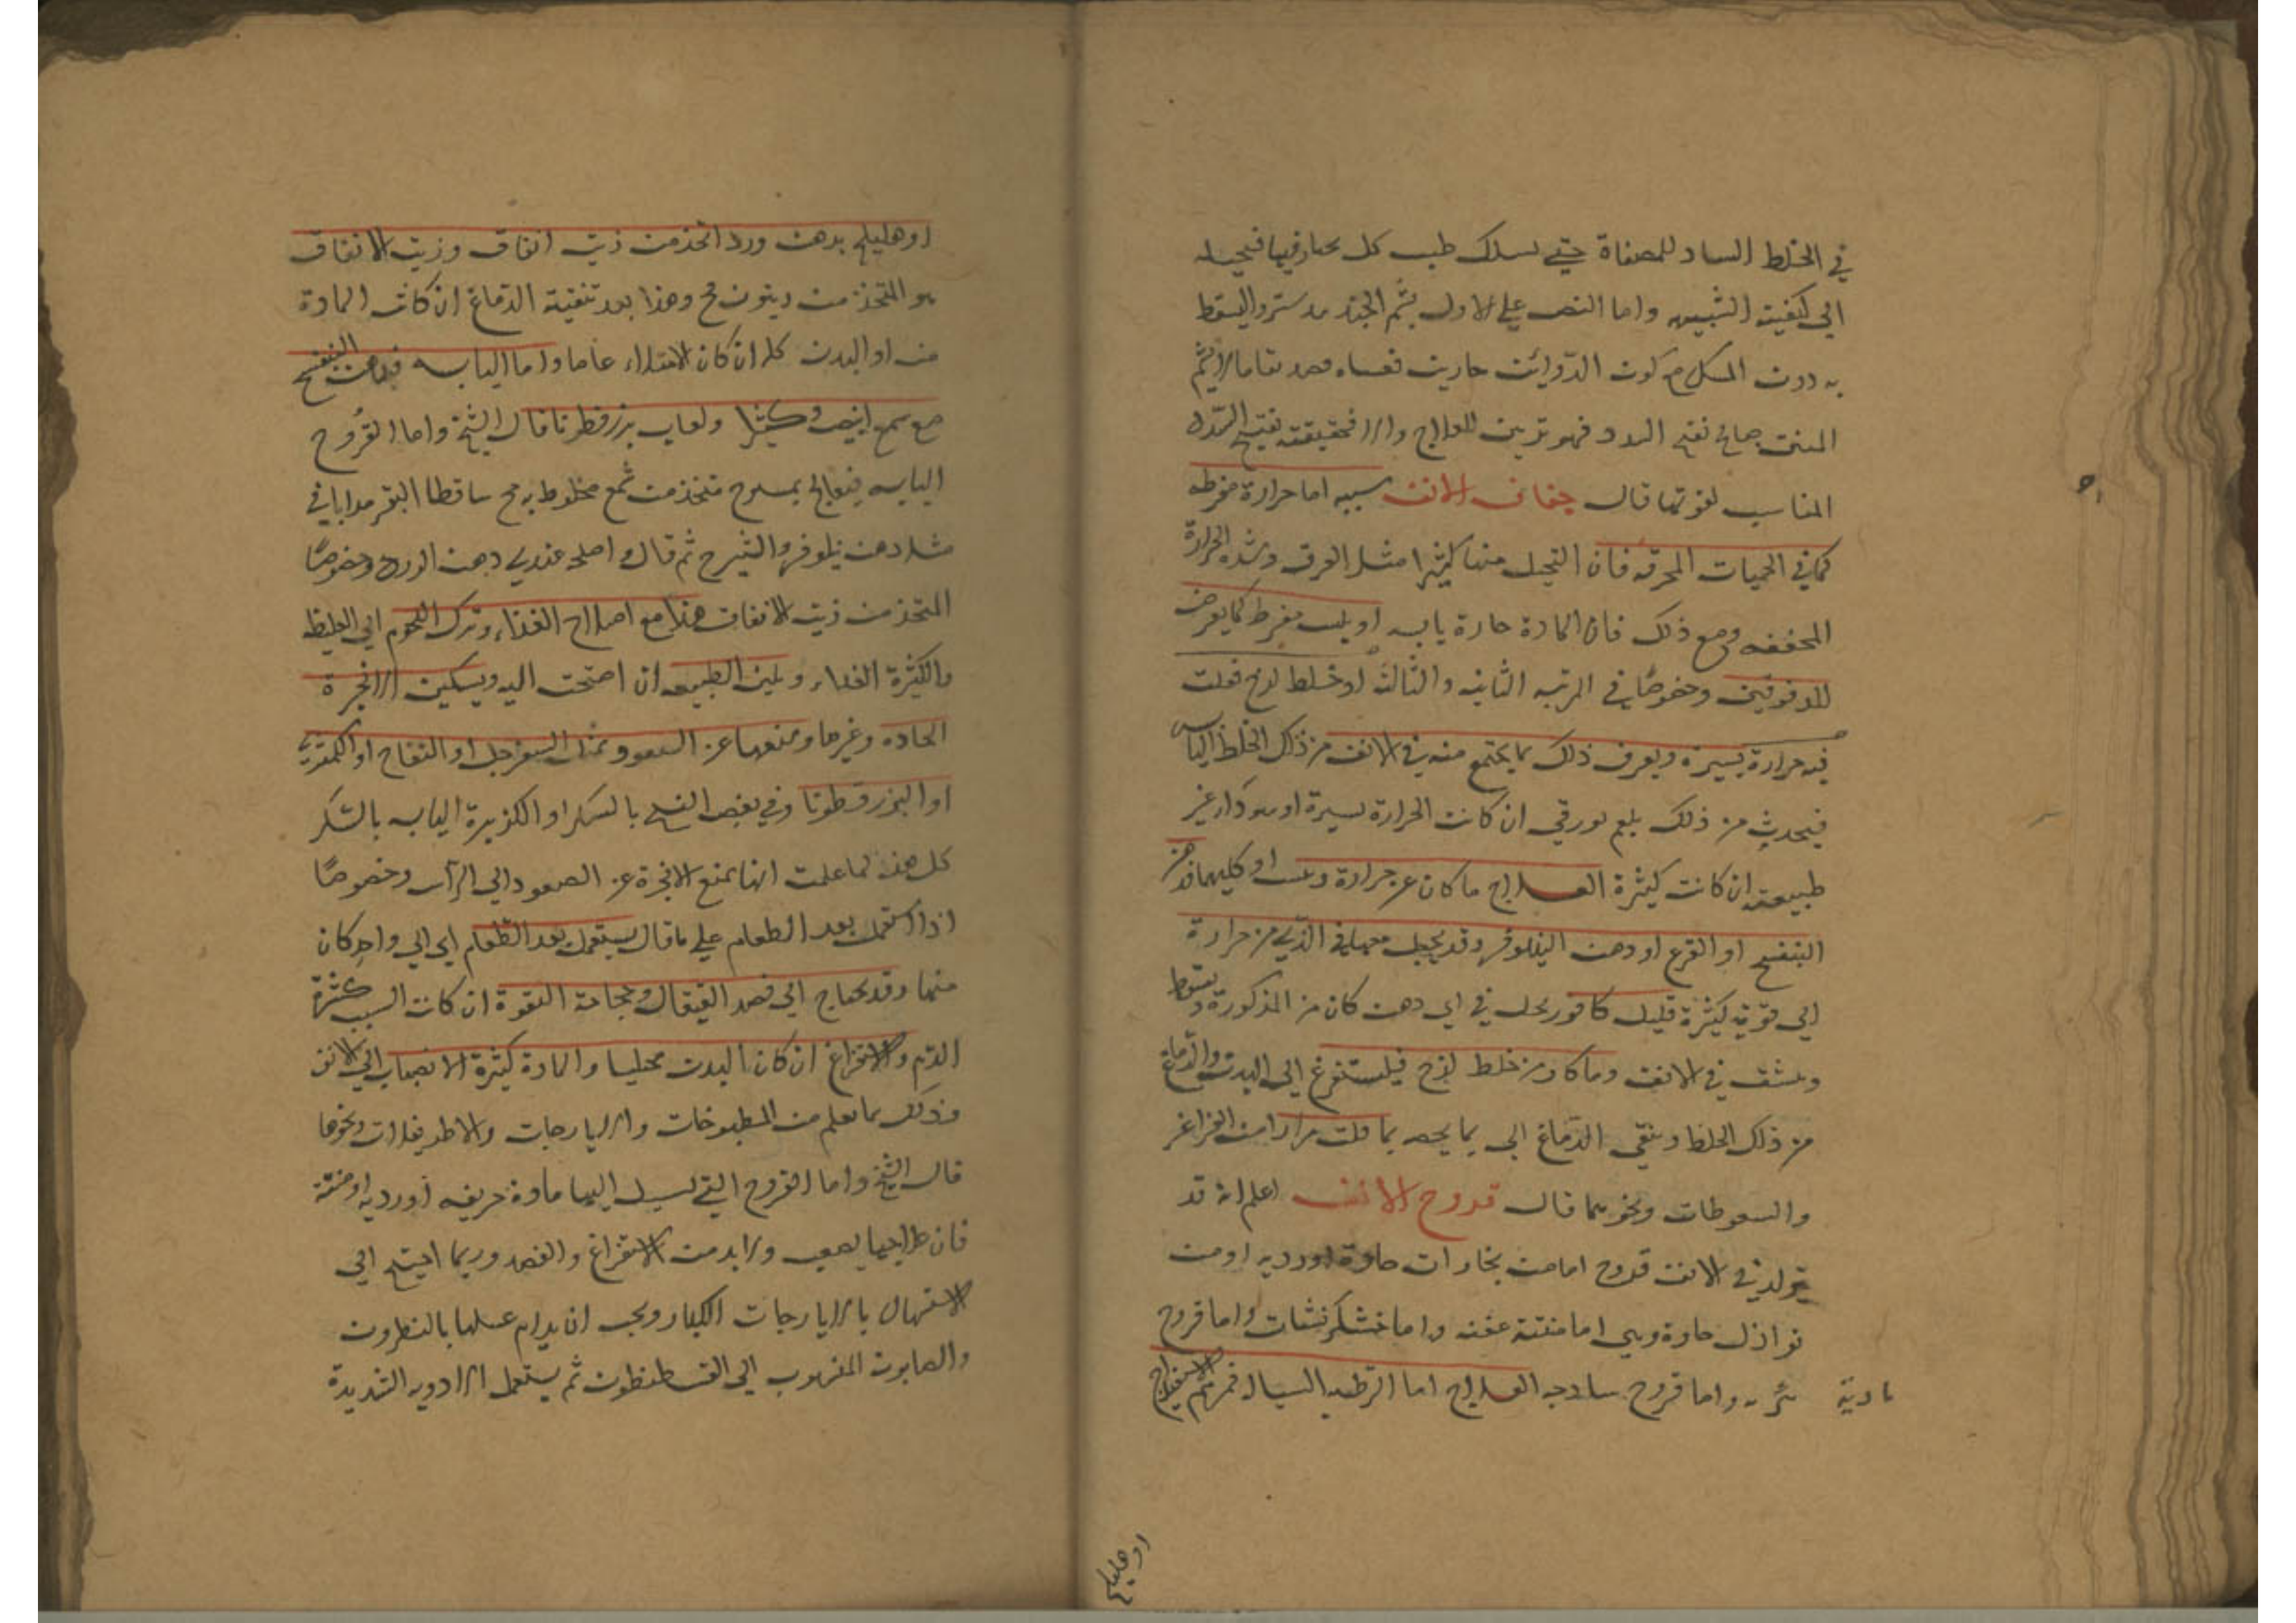 في الخلط الساد للمصفاة حتى لسلك طيب كل بخار فيها فيحيله
الى كيفيته واما النص على الاول بشم الجند بدستر والسقط
به دون المسك مع كون الدوائين حارين
المنتن تفتح السدد فهو تزيين للعلاج والا فحقيقته تفتيح السدد
المناسب لقوتها قال جفاف الانف سببه اما حرارة مفرطه
كما في الحميات المحرقه فان التحلل منها كثيرا مثل العرق وشدة الحرارة
المجففه ومع ذلك فان المادة حارة يابسه او يبس مفرط كما يعرض
للدقوقين وخصوصًا في المرتبه الثانيه والثالثه او خلط لزج فعلت
فيه حرارة يسيرة ويعرف ذلك بما يجتمع منه في الانف من ذلك الخلط اليابس
فيحدث من ذلك بلغم بورقي ان كانت الحرارة يسيرة او سوداء غير
طبيعته ان كانت كثيرة العلاج ما كان عن حرارة ويبس او كليهما فدهن
البنفسج او القرع او دهن النيلوفر وقد يجعل معها في الذي من حرارة
الى قوته كثيرة قليل كافور يحل في اي دهن كان من المذكورة ويسعط
وينشق في الانف وما كان من خلط لزج فليستفرغ الى البدن والدماغ
من ذلك الخلط وينقى الدماغ الى بما يخصه بما قلت مرارا من الغراغر
والسعوطات ونحوهما قال قروح الانف اعلم انه قد
يتولد في الانف قروح اما من بخارات حادة او رديه او من
نوازل حادة وهي اما منتنة عفنه واما خشكريشات واما قروح
بادية بثريه واما قروح ساذجه العلاج اما الرطبه السيالة فمرهم الاسفيداج
او هليلج
او هليلج بدهن ورد اتخذ من زيت انفاق وزيت الانفاق
هو المتخذ من زيتون فج وهذا بعد تنقية الدماغ ان كانت المادة
منه او البدن كله ان كان الامتلاء عاما واما اليابسه فدهن البنفسج
مع شمع ابيض وكثيرا ولعاب بزر قطونا قال الشيخ واما القروح
اليابسه فيعالج بمسوح متخذ من شمع مخلوط به مخ ساق البقر مذابا في
مثل دهن نيلوفر والشيرج ثم قال واصلحه عندي دهن الورد وخصوصًا
المتخذ من زيت الانفاق هذا مع اصلاح الغذاء وترك اللحوم الى الغليظه
والكثيرة الغذاء وتلين الطبيعه ان احتجت اليه ويسكين الابخرة
الحاده وغيرها ومنعها عن الصعود بمثل السفرجل او التفاح او الكمثرى
او البزر قطونا وفي بعض النسخ بالسكر او الكزبرة اليابسه بالسكر
كل هذه لما علمت انها يمنع الابخرة عن الصعود الى الرأس وخصوصًا
اذا استعمل بعد الطعام على ما قال يستعمل بعد الطعام اي الى واحد كان
منها وقد يحتاج الى فصد القيفال وحجامة النقرة ان كانت السبب كثرة
الدم والاستفراغ ان كان البدن ممتليا والمادة كثيرة الانصباب الى الانف
وذلك بما تعلم من المطبوخات والايارجات والاطريفلات ونحوها
قال الشيخ واما القروح التي تسيل اليها مادة حريفه او رديه او منتنة
فان علاجها يصعب ولا بد من الاستفراغ والفصد وربما احتيج الى
الاستسهال بالايارجات الكبار ويجب ان يدام غسلها بالنطرون
والصابون المنسوب الى القسطنطون ثم يستعمل الادويه الشديدة